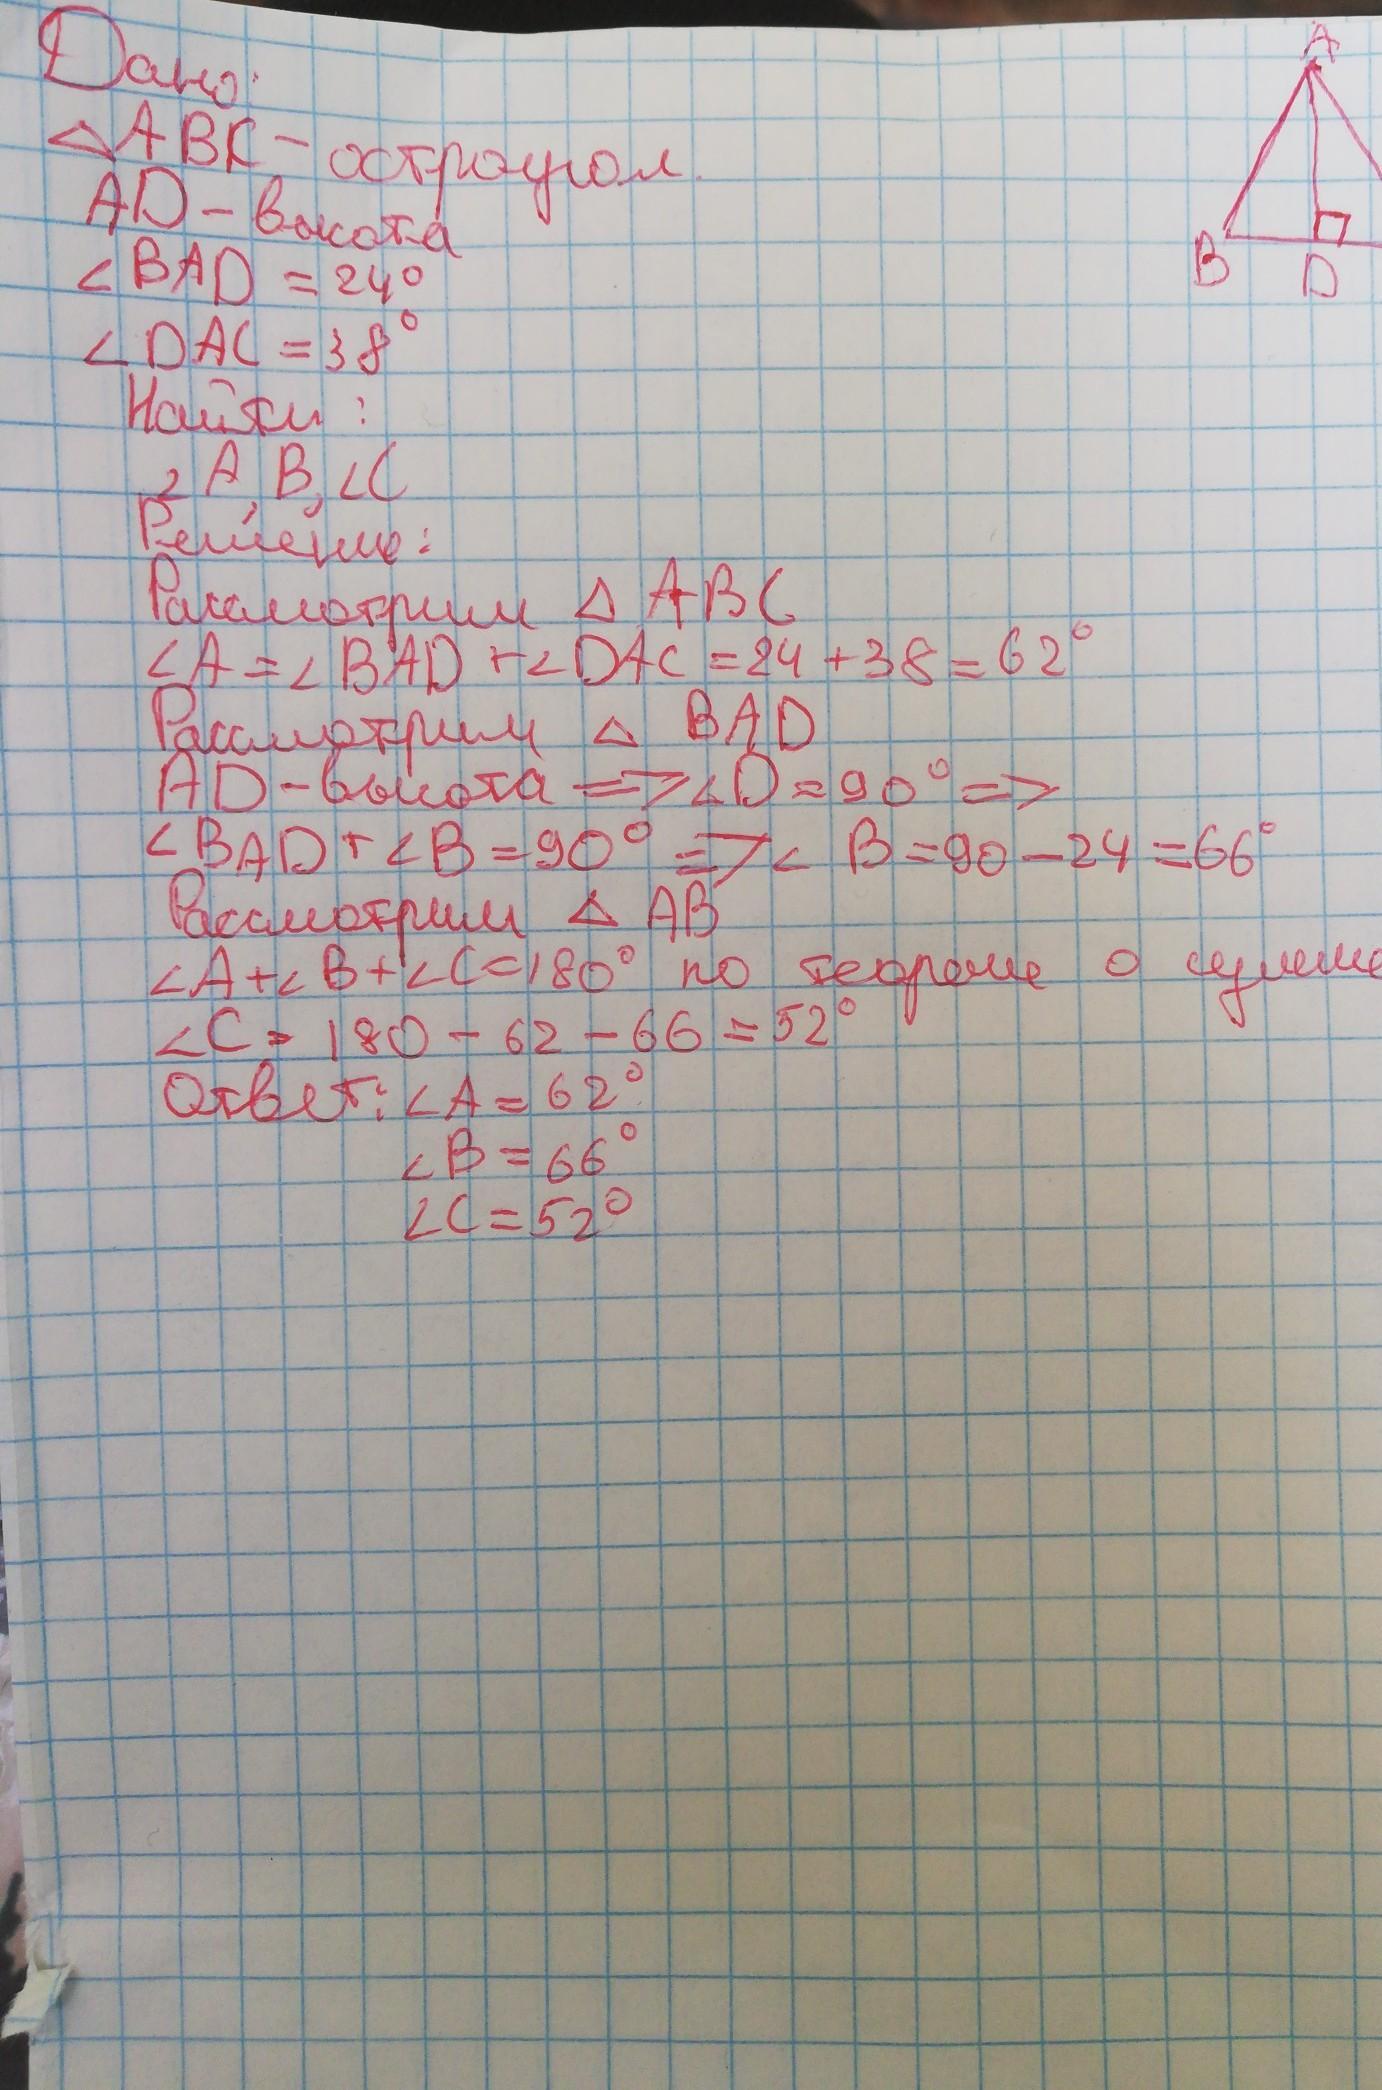 Дано:
△ABC - остроугол.
AD - высота
∠BAD = 24°
∠DAC = 38°
Найти:
∠A, B, ∠C
Решение:
Рассмотрим △ ABC
∠A = ∠BAD + ∠DAC = 24 + 38 = 62°
Рассмотрим △ BAD
AD - высота => ∠D = 90° =>
∠BAD + ∠B = 90° => ∠ B = 90 - 24 = 66°
Рассмотрим △ AB
∠A + ∠B + ∠C = 180° по теореме о сумме
∠C = 180 - 62 - 66 = 52°
Ответ: ∠A = 62°
∠B = 66°
∠C = 52°
A
B D